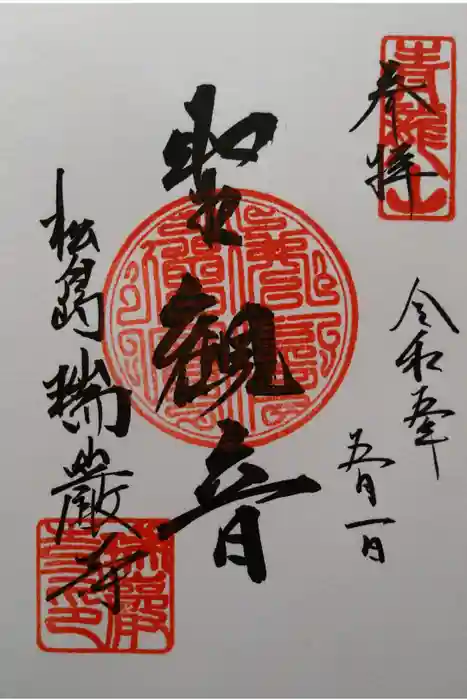 奉拝
令和五年
五月一日
聖観音
松島瑞巌寺
青龍山